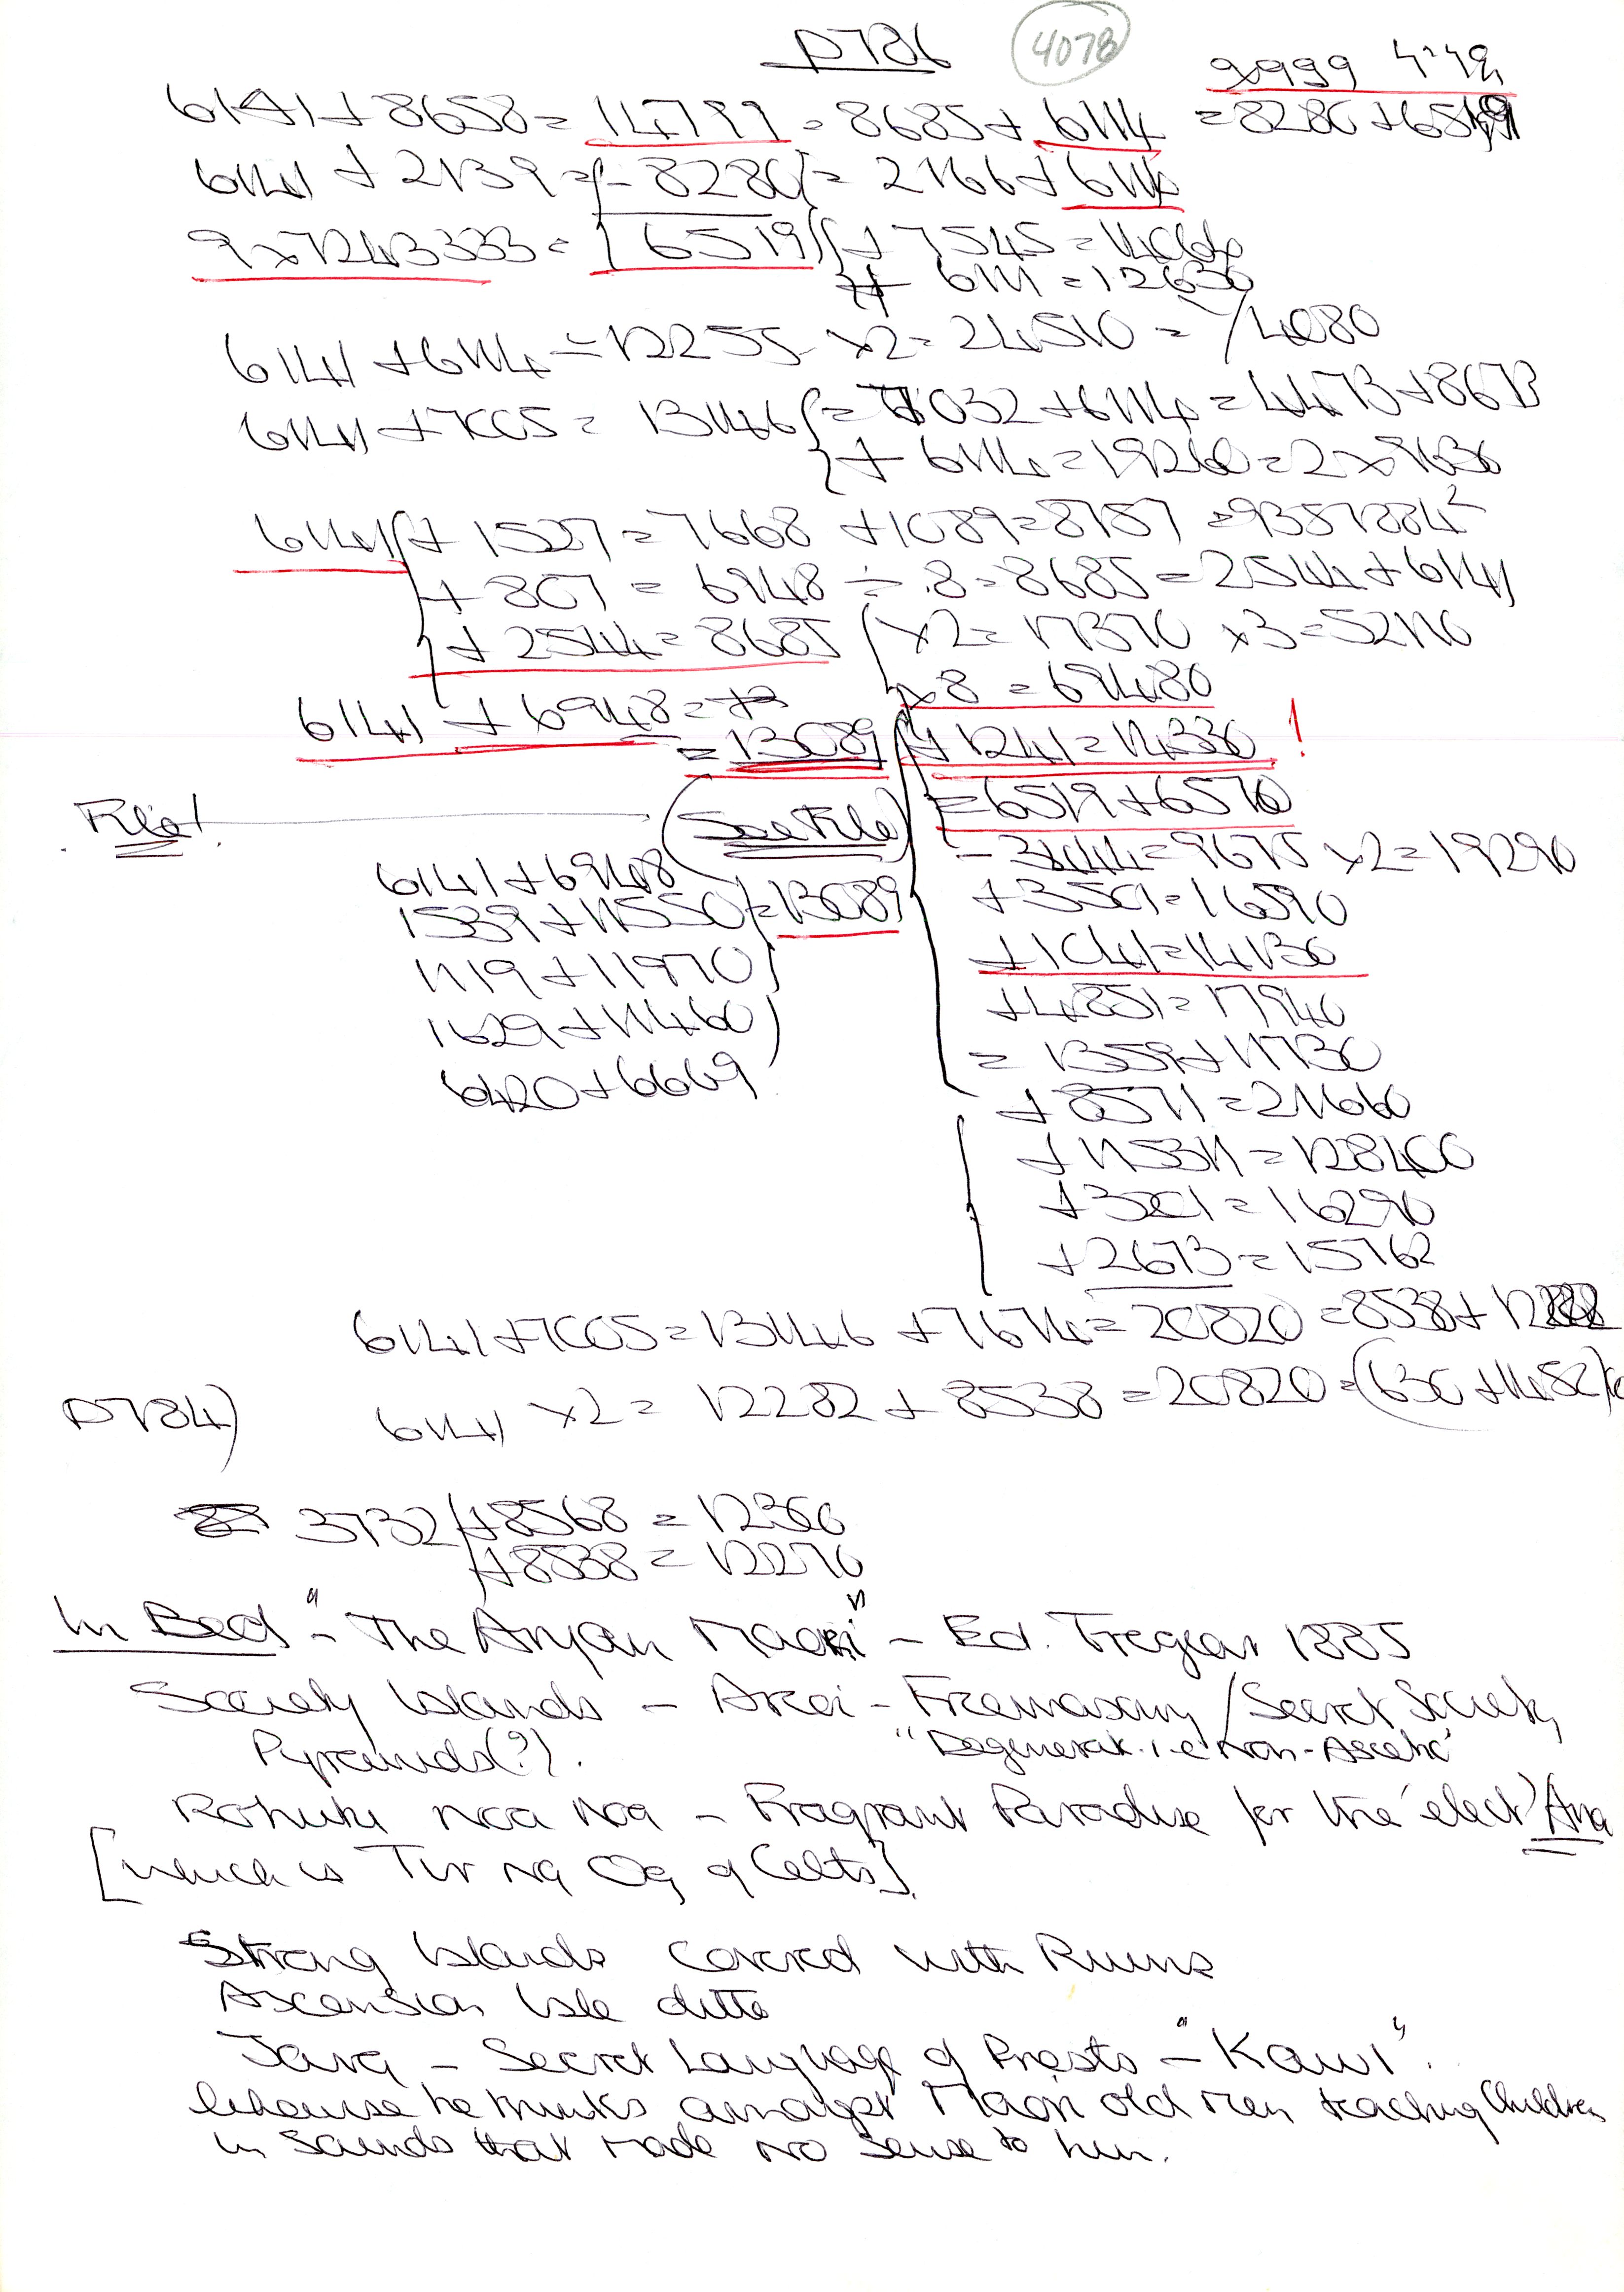 P786
4078
9999 4'12
6141 + 8658 = 14799 = 8685 + 6114 = 8280 + 6519
6141 + 2139 = - 8280 = 2166 + 6114
9 x 7243333 = 6519 + 7545 = 14064
+ 6111 = 12630
6141 + 6114 = 12255 x2 = 24510 = /4080
6141 + 7005 = 13146 = 7032 + 6114 = 4473 + 8673
+ 6114 = 19260 = 2 x 9630
6141 + 1527 = 7668 + 1089 = 8757 = 93.57884²
+ 807 = 6948 ÷ .8 = 8685 = 2544 + 6141
+ 2544 = 8685 x2 = 17370 x3 = 52110
x 8 = 69480
6141 + 6948 =
= 13089 + 1241 = 14330 !
= 6519 + 6570
Filed (See File)
- 3414 = 9675 x2 = 19290
6141 + 6948
1539 + 11550 = 13089
+ 3501 = 16590
1119 + 11970
+ 1041 = 14130
1629 + 11460
+ 4851 = 17940
6420 + 6669
= 1359 + 11730
+ 8571 = 21660
+ 115311 = 128400
+ 3201 = 16290
+ 2673 = 15762
6141 + 7005 = 13146 + 7674 = 20820 = 8538 + 12282
P784) 6141 x2 = 12282 + 8538 = 20820 = (630 + 1452)
3732 + 8568 = 12300
+ 8538 = 12270
In Bed - "The Aryan Maori" - Ed. Tregear 1885
Society Islands - Areoi - Freemasonry / Secret Society
Pyramids(?). "Degenerate. i.e Non-Ascetic"
Rohutu Noa Noa - Fragrant Paradise for the 'elect'
[which is Tir na Og of Celts]
Strong Islands covered with Ruins
Ascension Isle ditto
Java - Secret Language of Priests - "Kawi".
likewise he thinks amongst Maori old men teaching Children
in sounds that made no sense to him.